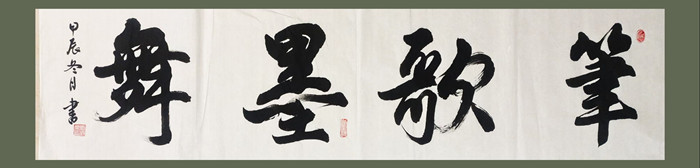 筆歌墨舞
甲辰冬月書